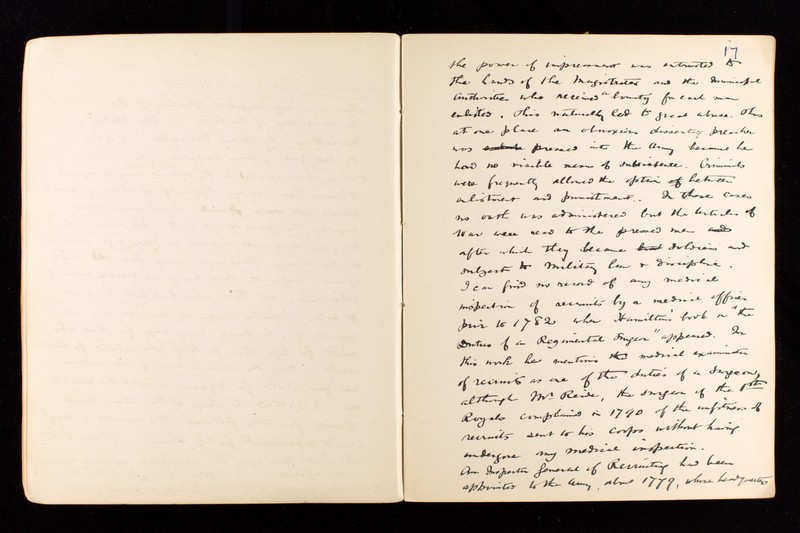 17
the power of impressment was entrusted to
the hands of the Magistrates and the Municipal
Authorities who received a bounty for each man
enlisted. This naturally led to great abuse. Thus
at one place an obnoxious dissenting preacher
was pressed into the Army because he
had no visible means of subsistence. Criminals
were frequently allowed the option of between
enlistment and punishment. In these cases
no oath was administered but the Articles of
War were read to the pressed men and
after which they became soldiers and
subject to Military law & discipline.
I can find no record of any medical
inspection of recruits by a medical officer
prior to 1782 when Hamilton's book on "the
Duties of a Regimental Surgeon" appeared. In
this work he mentions the medical examination
of recruits as one of the duties of a Surgeon,
although Mr. Reide, the surgeon of the 1st
Royals complained in 1790 of the unfitness of
recruits sent to his corps without having
undergone any medical inspection.
An Inspector General of Recruiting had been
appointed to the Army, about 1779, whose headquarters